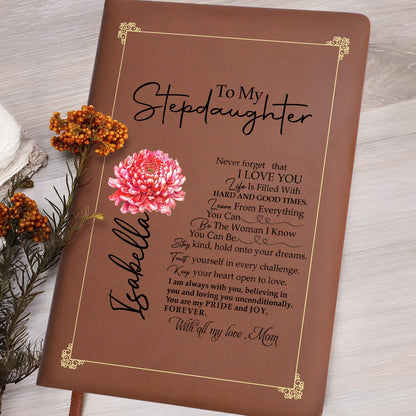 To My
Stepdaughter
Never forget that
I LOVE YOU
Life Is Filled With
HARD AND GOOD TIMES.
Learn From Everything
You Can
Be The Woman I Know
You Can Be
Stay kind, hold onto your dreams.
Trust yourself in every challenge.
Keep your heart open to love.
I am always with you, believing in
you and loving you unconditionally.
You are my PRIDE and JOY.
FOREVER.
With all my love, Mom
Isabella